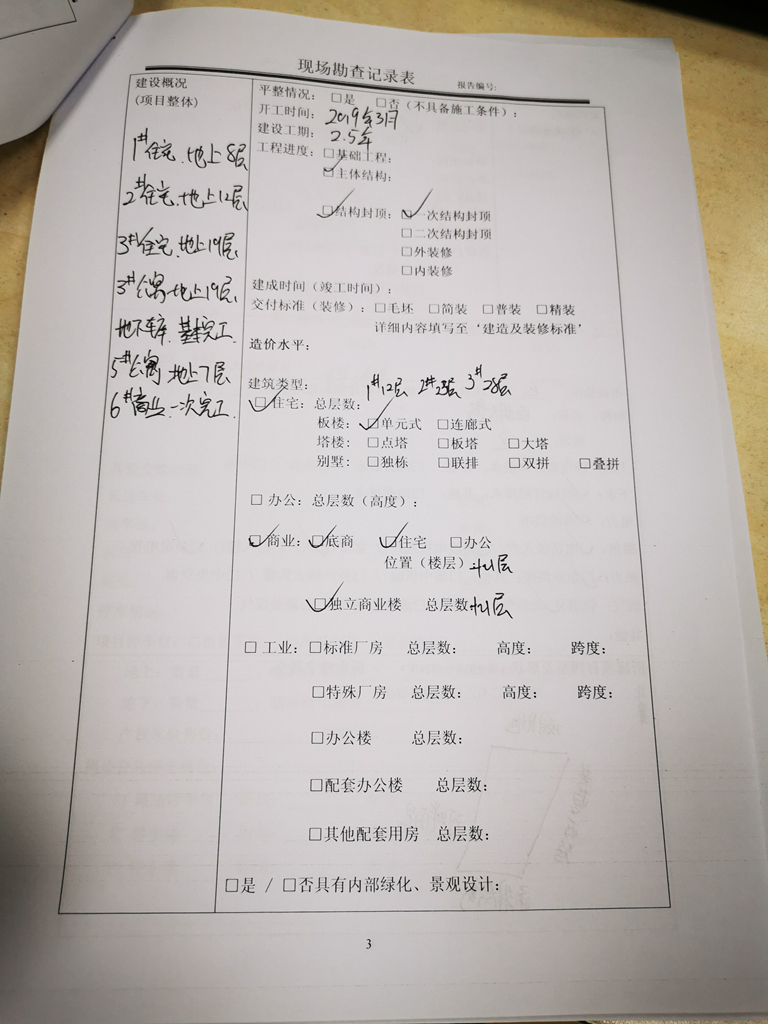 现场勘查记录表
报告编号:
建设概况
(项目整体)
1#住宅、地上8层
2#住宅、地上12层
3#住宅、地上19层
3#公寓 地上19层
地下车库 基本完工
5#公寓 地上7层
6#商业、一次完工
平整情况: □是 □否(不具备施工条件):
开工时间: 2019年3月
建设工期: 2.5年
工程进度: □基础工程:
☑主体结构:
☑结构封顶: ☑一次结构封顶
□二次结构封顶
□外装修
□内装修
建成时间(竣工时间):
交付标准(装修): □毛坯 □简装 □普装 □精装
详细内容填写至‘建造及装修标准’
造价水平:
建筑类型: 1#12层 2#23层 3#28层
☑住宅: 总层数:
板楼: ☑单元式 □连廊式
塔楼: □点塔 □板塔 □大塔
别墅: □独栋 □联排 □双拼 □叠拼
□ 办公: 总层数(高度):
☑商业: ☑底商 ☑住宅 □办公
位置(楼层) 层
☑独立商业楼 总层数 层
□ 工业: □标准厂房 总层数: 高度: 跨度:
□特殊厂房 总层数: 高度: 跨度:
□办公楼 总层数:
□配套办公楼 总层数:
□其他配套用房 总层数:
□是 / □否具有内部绿化、景观设计:
3